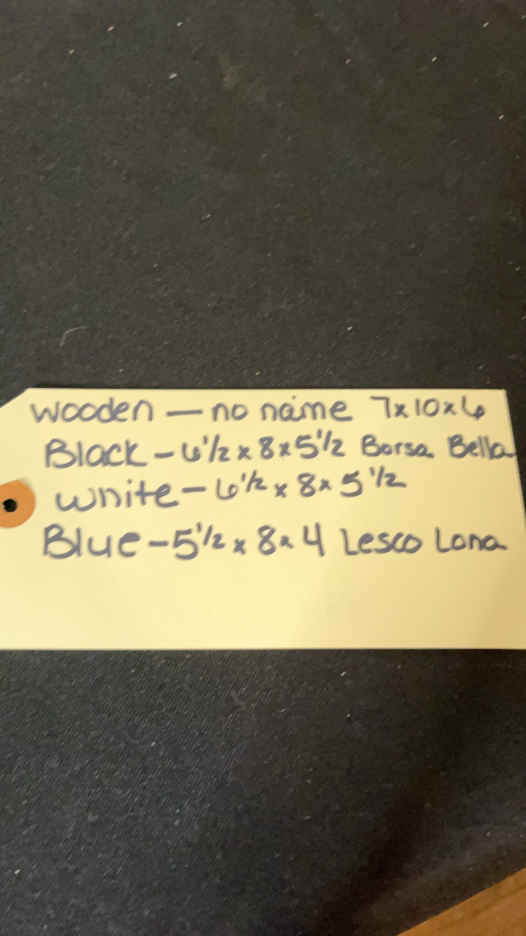 wooden — no name 7x10x6
Black - 6 1/2 x 8 x 5 1/2 Borsa Bella
white - 6 1/2 x 8 x 5 1/2
Blue - 5 1/2 x 8 x 4 Lesco Lona